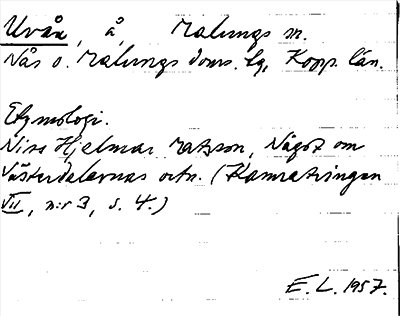 Uvån, å, Malungs sn.
Nås o. Malungs doms. hg, Kopp. län.
Etymologi.
Niss Hjelmar Matsson, Något om
Västerdalarnas ortn. (Kamratringen
VII, n:r 3, s. 4.)
E. L. 1957.